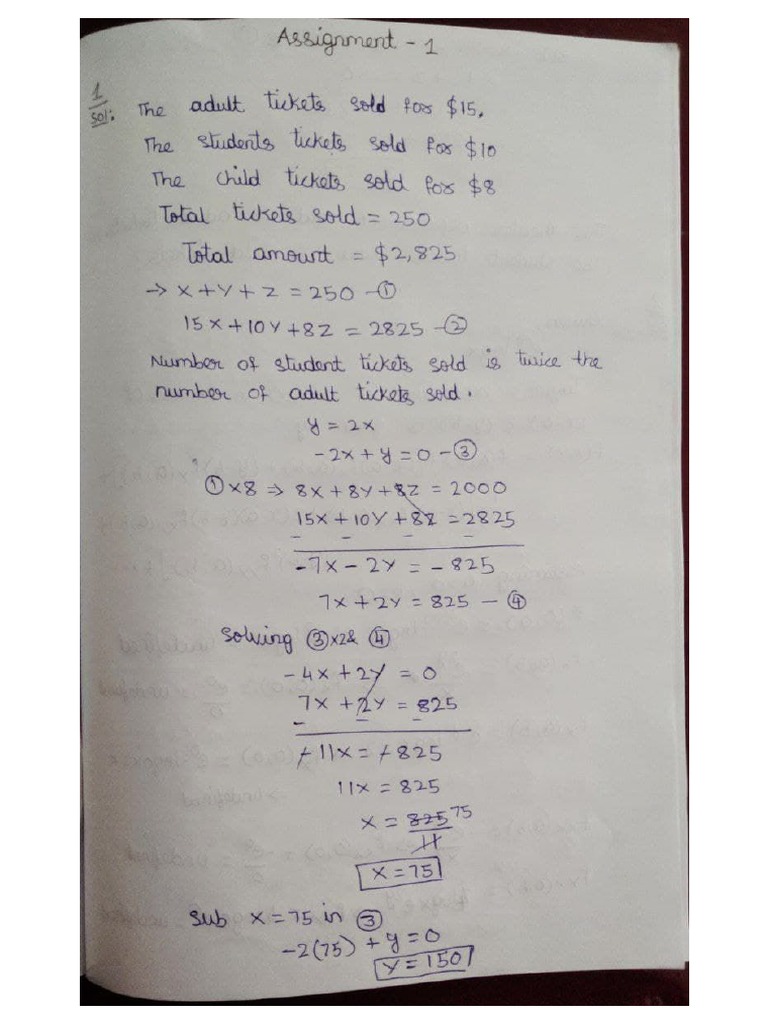 Assignment - 1
1
sol: The adult tickets sold for $15.
The students tickets sold for $10
The child tickets sold for $8
Total tickets sold = 250
Total amount = $2,825
→ x + y + z = 250 - ①
15x + 10y + 8z = 2825 - ②
Number of student tickets sold is twice the
number of adult tickets sold.
y = 2x
-2x + y = 0 - ③
① x8 ⇒ 8x + 8y + 8z = 2000
15x + 10y + 8z = 2825
- - - -
-7x - 2y = -825
7x + 2y = 825 - ④
Solving ③x2 & ④
-4x + 2y = 0
7x + 2y = 825
- - -
-11x = -825
11x = 825
x = 825 75
11
x = 75
Sub x = 75 in ③
-2(75) + y = 0
y = 150